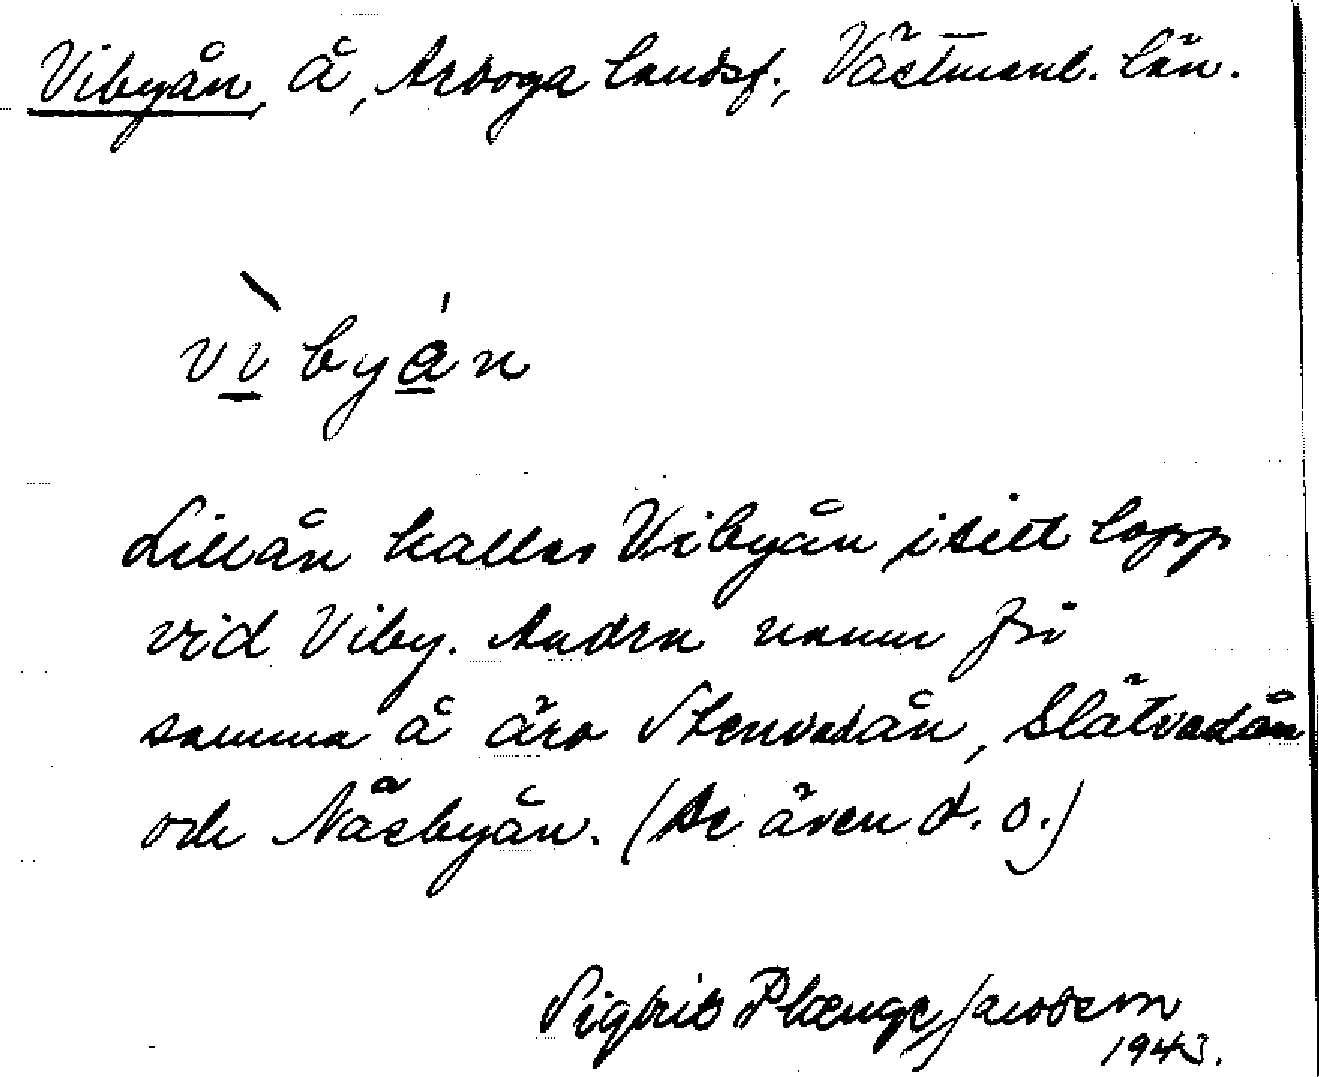 Vibyån, å, Arboga landsf., Västmanl. län.
vìbyån
Lillån kallas Vibyån i sitt lopp
vid Viby. Andra namn för
samma å äro Stenvadån, Slätvadån
och Näsbyån. (Se även d. o.)
Sigfrid Plænge Jacobson
1943.